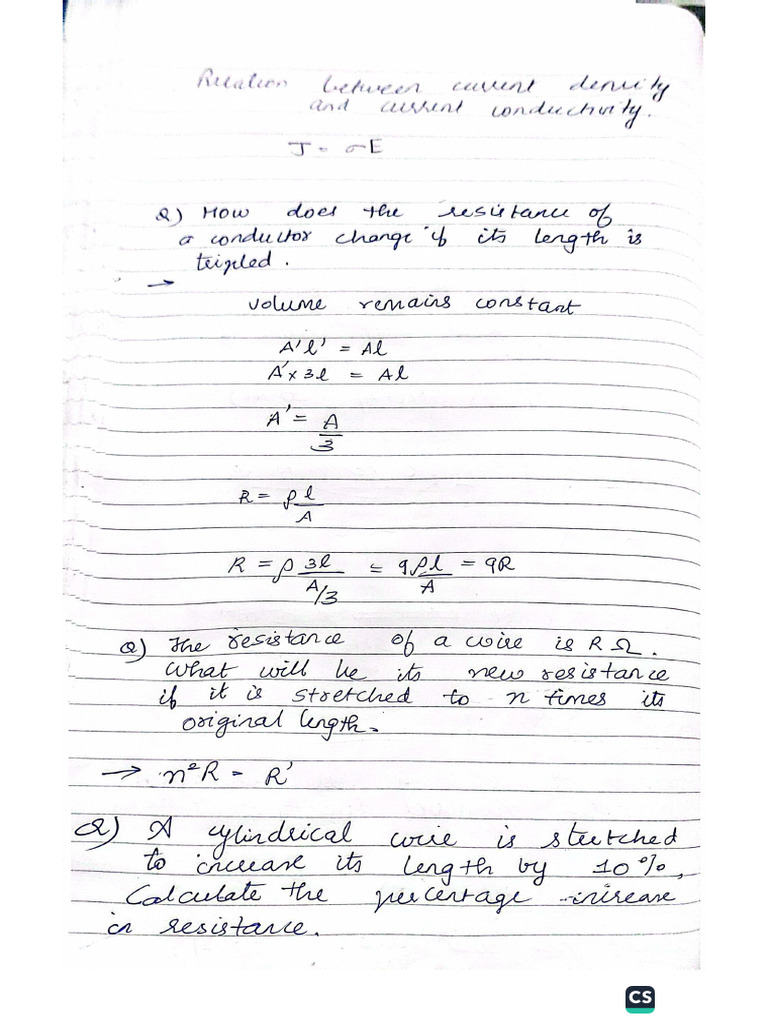 Relation between current density
and current conductivity.
J = σE
Q) How does the resistance of
a conductor change if its length is
tripled.
→
volume remains constant
A'l' = Al
A' x 3l = Al
A' = A/3
R = ρ l/A
R = ρ 3l/(A/3) = 9ρl/A = 9R
Q) The resistance of a wire is R Ω.
What will be its new resistance
if it is stretched to n times its
original length.
→ n²R = R'
Q) A cylindrical wire is stretched
to increase its length by 10%,
Calculate the percentage increase
in resistance.
CS